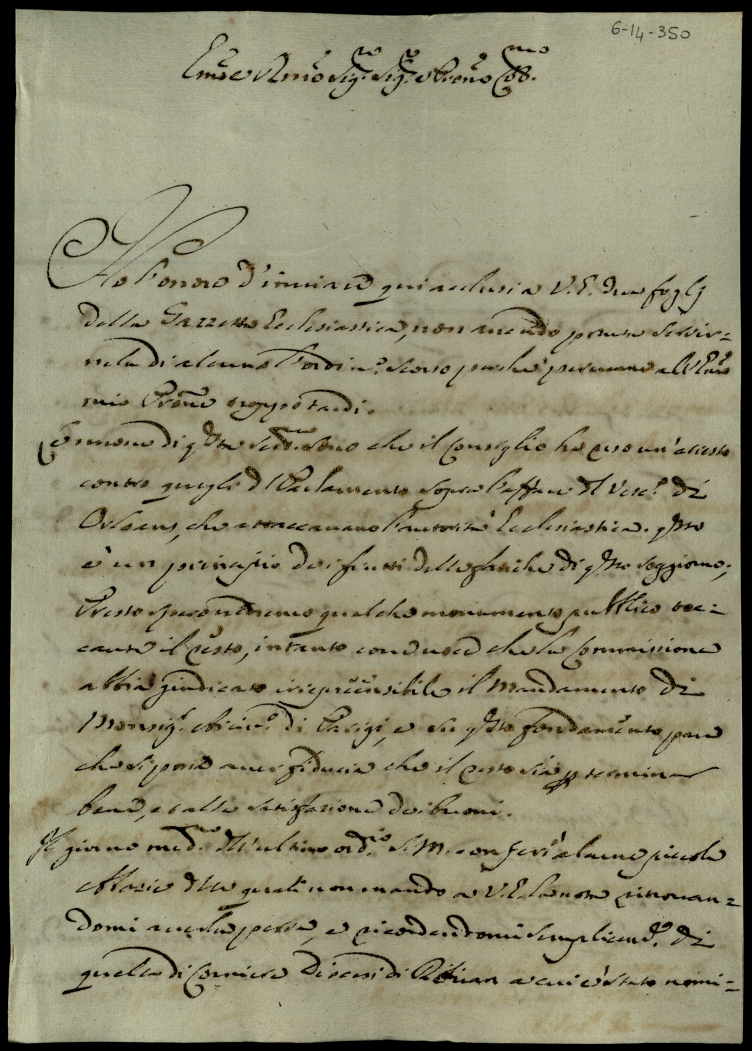 6-14-350
Emo e Rmo Sigr. Sigr. e Prone Colmo.
Ho l'onore d'inviare qui acclusi a V.E. due fogli
della Gazzetta Ecclesiastica, non avendo potuto servir=
nela di alcuno l'ordino. scorso perche pervenne all'Emo
mio Prone troppo tardi.
di qsta che il Consiglio ha reso un'arresto
contro quegli dl Parlamento sopra l'affare dl Vesco. di
Orleans, che attaccavano l'autorità Ecclesiastica. qsto
è un principio dei frutti delle fatiche di qsto soggiorno;
Presto qualche monumento pubblico toc=
cante il resto, intanto che la Commissione
abbia giudicato irreprensibile il Mandamento di
Monsigr. Arcivo. di Parigi, e su qsto fondamento pare
che si possa aver fiducia che il resto sia p terminar
bene, e alla satisfazione dei buoni.
Il giorno medmo. dll'ultimo ordrio S.M. conferì alcune piccole
Abazie dlle quali non mando a V.E. la nota ritrovan=
domi averla persa, e ricordandomi semplicemte. di
quella di Corniere Diocesi di a cui è stato nomi=